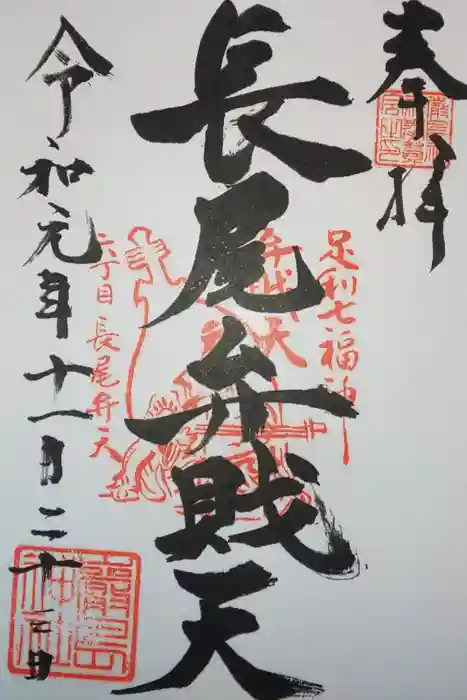 奉拝
足利七福神
長尾弁財天
六丁目長尾弁天
令和元年十一月二十三日